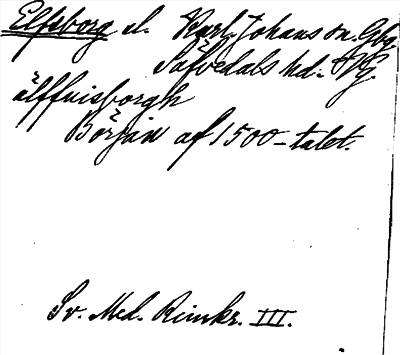 Elfsborg el. Karl Johans sn. Gbg
Säfvedals hd. VG.
älffuisborgh
Början af 1500-talet.
Sv. Med. Rimkr. III.